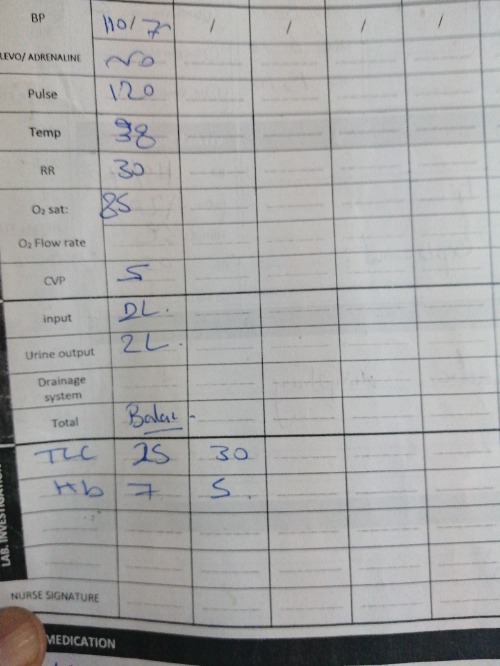 BP 110/7 / / / /
LEVO/ ADRENALINE NO
Pulse 120
Temp 38
RR 30
O₂ sat: 85
O₂ Flow rate
CVP 5
input 2L.
Urine output 2L.
Drainage system
Total
TLC 25 30
Hb 7 5.
LAB. INVESTIGATION
NURSE SIGNATURE
MEDICATION